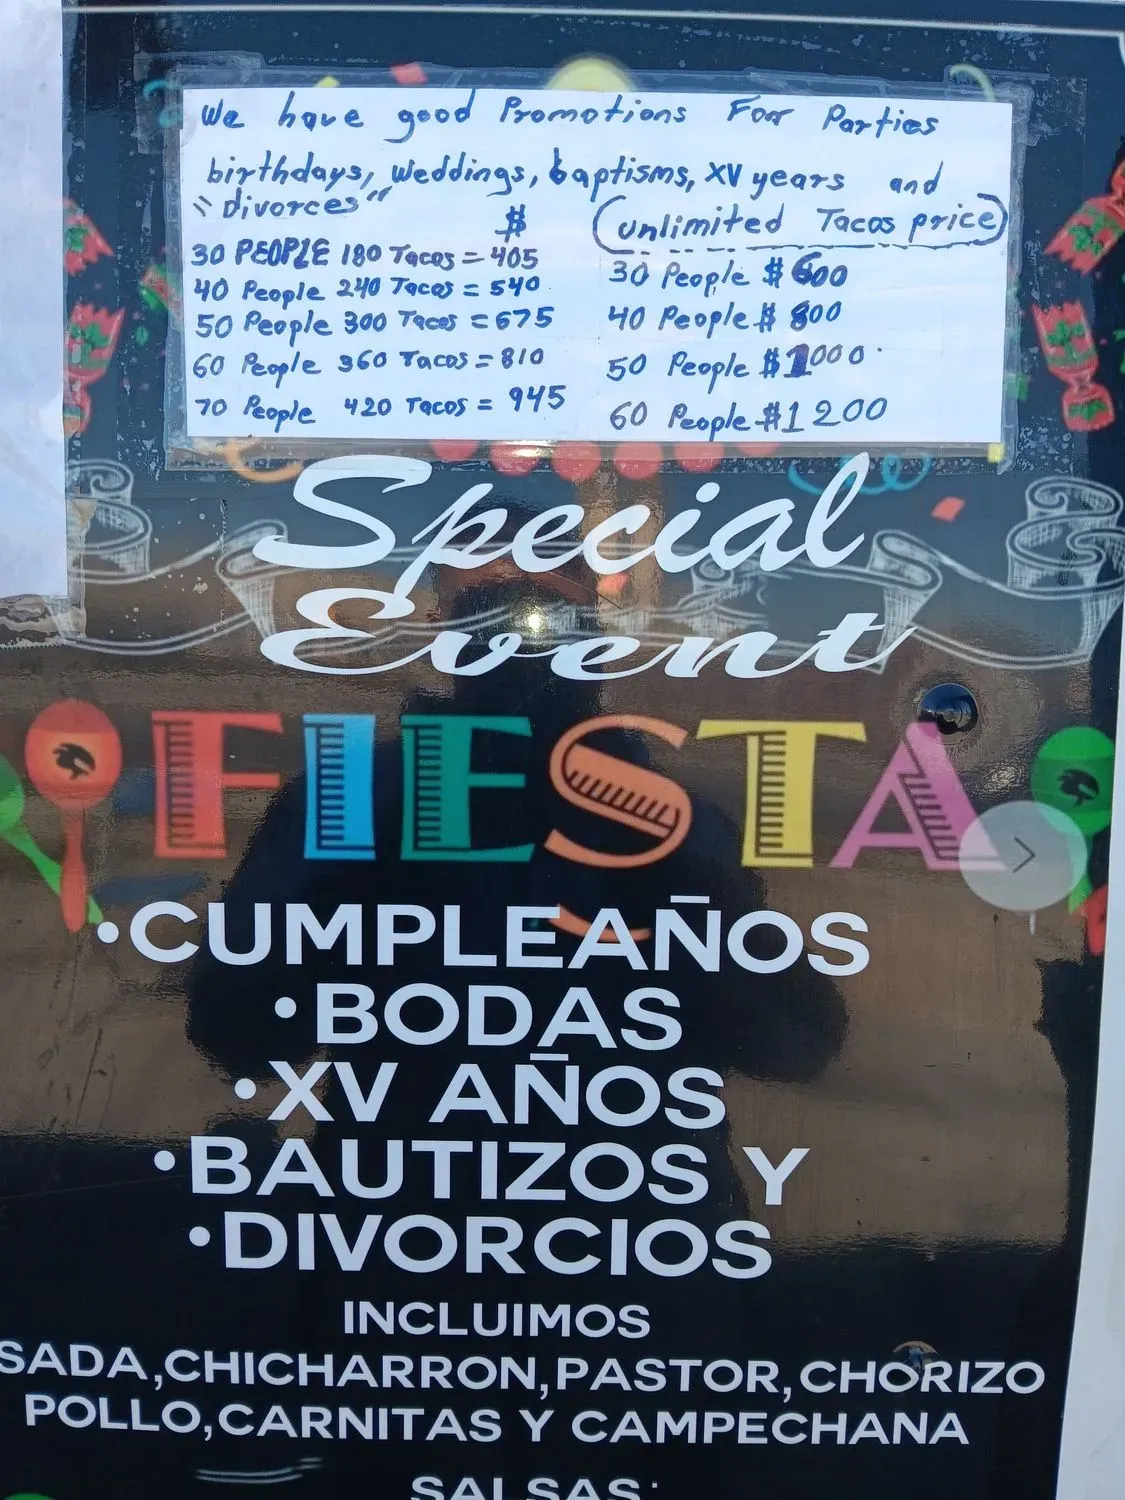 We have good Promotions For Parties
birthdays, Weddings, baptisms, XV years and
"divorces"
$
30 PEOPLE 180 Tacos = 405
40 People 240 Tacos = 540
50 People 300 Tacos = 675
60 People 360 Tacos = 810
70 People 420 Tacos = 945
unlimited Tacos price
30 People $ 600
40 People $ 800
50 People $1000
60 People $1200
Special
Event
FIESTA
•CUMPLEAÑOS
•BODAS
•XV AÑOS
•BAUTIZOS Y
•DIVORCIOS
INCLUIMOS
SADA,CHICHARRON,PASTOR,CHORIZO
POLLO,CARNITAS Y CAMPECHANA
SALSAS: